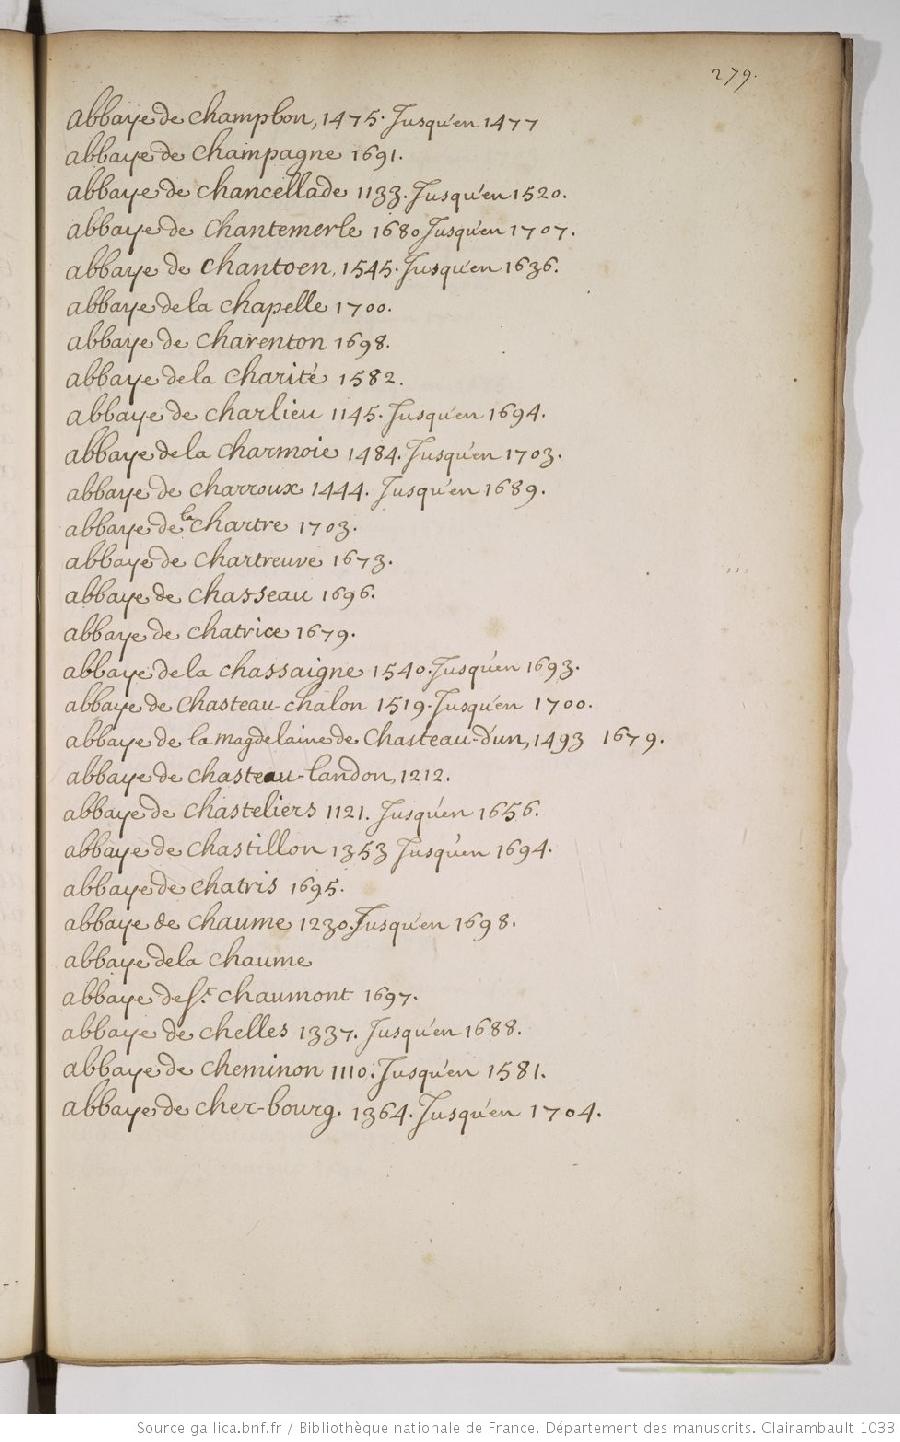 279.
abbaye de champbon, 1475. Jusqu'en 1477
abbaye de champagne 1691.
abbaye de chancellade 1133. Jusqu'en 1520.
abbaye de chantemerle 1680 Jusqu'en 1707.
abbaye de chantoen, 1545. Jusqu'en 1636.
abbaye de la chapelle 1700.
abbaye de charenton 1698.
abbaye de la charité 1582.
abbaye de charlieu 1145. Jusqu'en 1694.
abbaye de la charmoie 1484. Jusqu'en 1703.
abbaye de charroux 1444. Jusqu'en 1689.
abbaye de la chartre 1703.
abbaye de chartreuve 1673.
abbaye de chasseau 1696.
abbaye de chatrice 1679.
abbaye de la chassaigne 1540. Jusqu'en 1693.
abbaye de chasteau-chalon 1519. Jusqu'en 1700.
abbaye de la magdelaine de chasteau-dun, 1493 1679.
abbaye de chasteau-landon, 1212.
abbaye de chasteliers 1121. Jusqu'en 1656.
abbaye de chastillon 1353 Jusqu'en 1694.
abbaye de chatris 1695.
abbaye de chaume 1230. Jusqu'en 1698.
abbaye de la chaume
abbaye de St. chaumont 1697.
abbaye de chelles 1337. Jusqu'en 1688.
abbaye de cheminon 1110. Jusqu'en 1581.
abbaye de cher-bourg. 1364. Jusqu'en 1704.
Source gallica.bnf.fr / Bibliothèque nationale de France. Département des manuscrits. Clairambault 1033